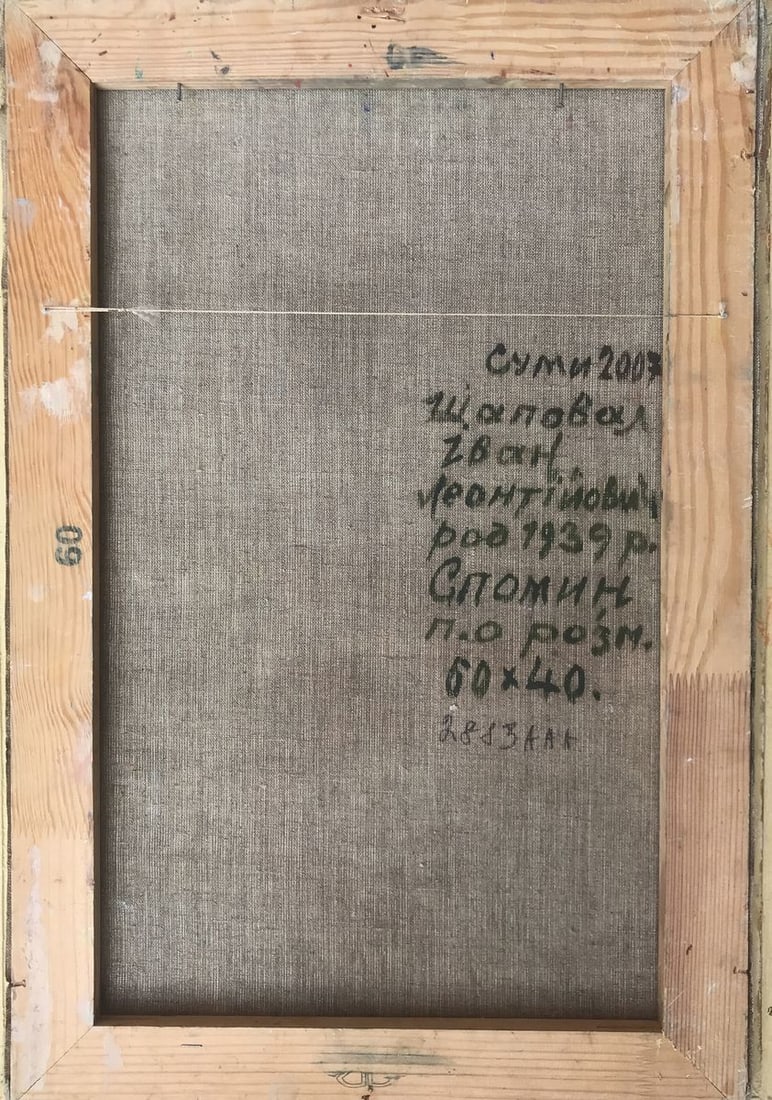 Суми 2007
Шаповал
Іван
Леонтійович
род 1939 р.
Спомин
п.о розм.
60х40.
2883ААА
60